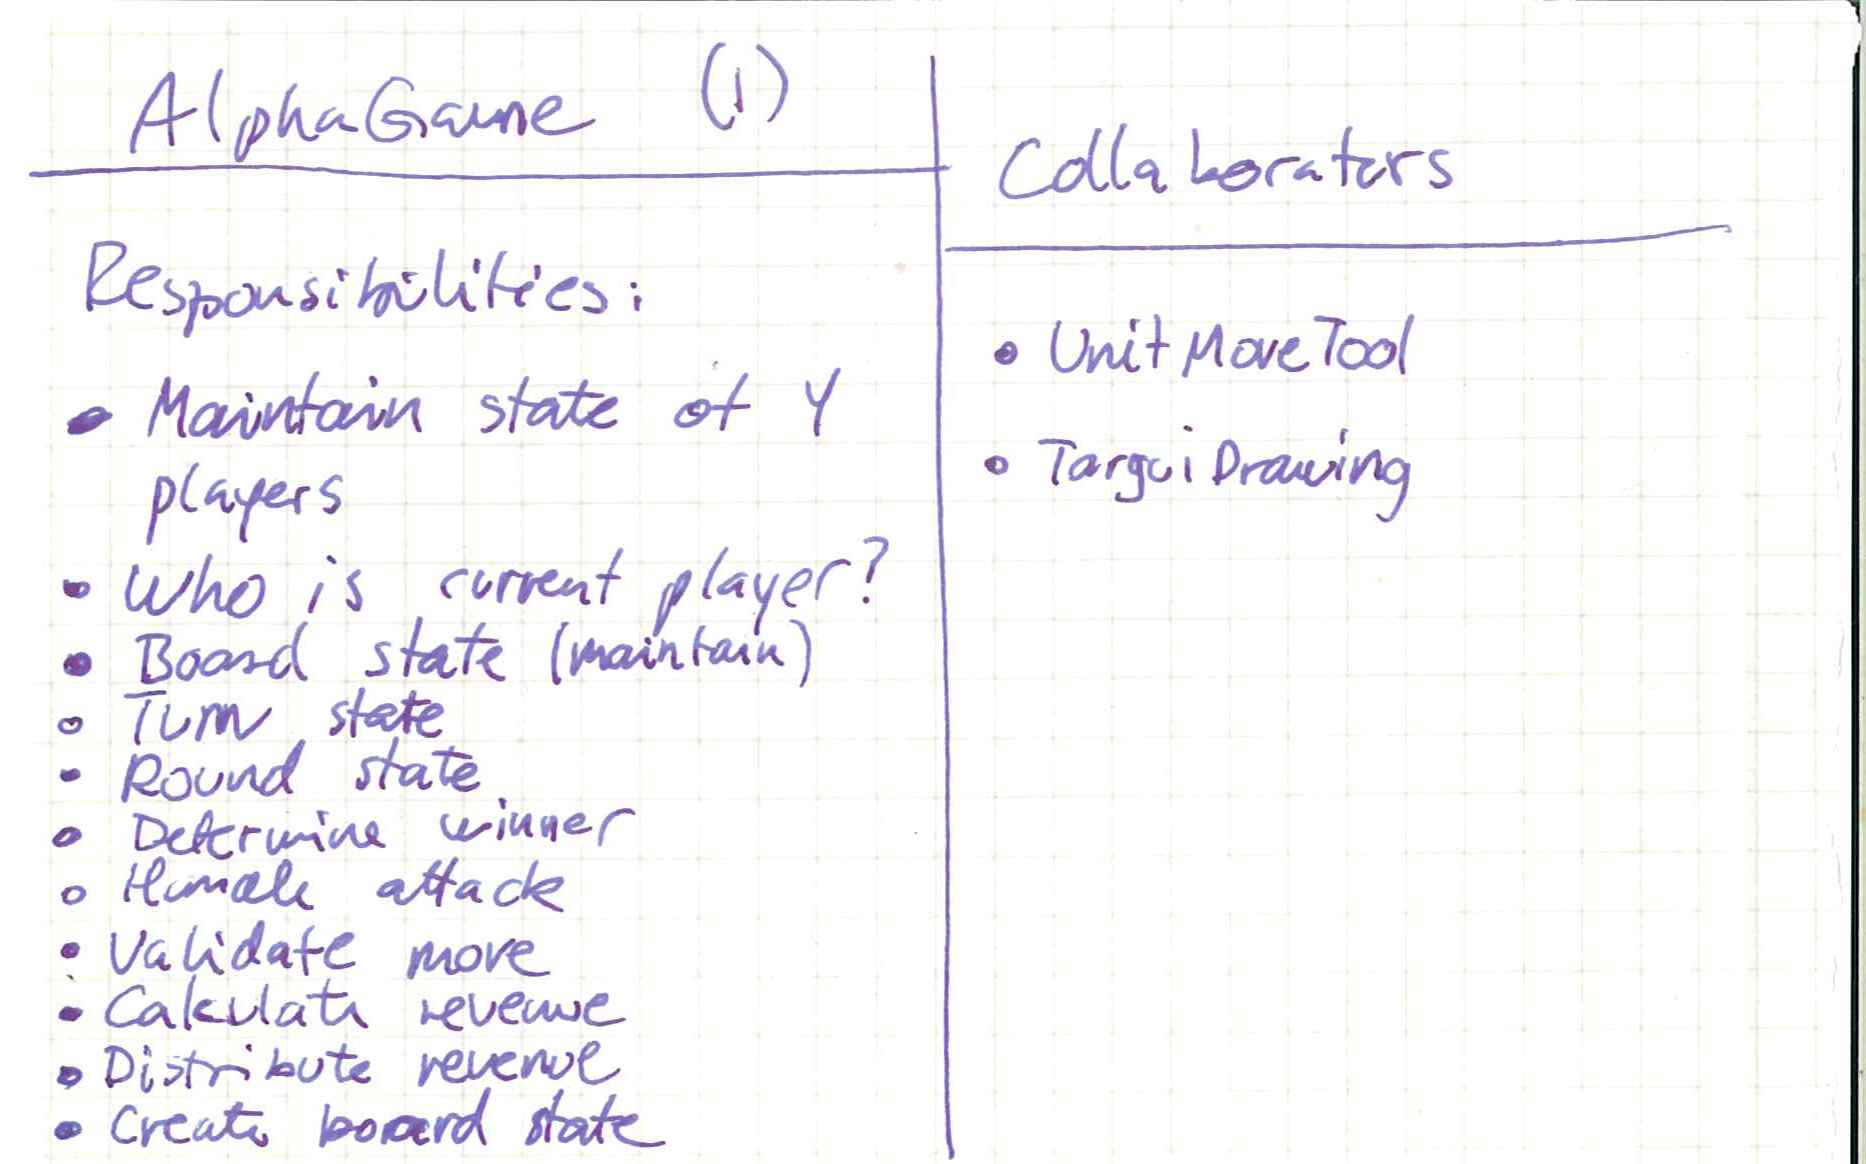 AlphaGame (1)
Responsibilities:
• Maintain state of 4
players
• Who is current player?
• Board state (maintain)
• Turn state
• Round state
• Determine winner
• Handle attack
• Validate move
• Calculate revenue
• Distribute revenue
• Create board state
Collaborators
• UnitMoveTool
• TarguiDrawing